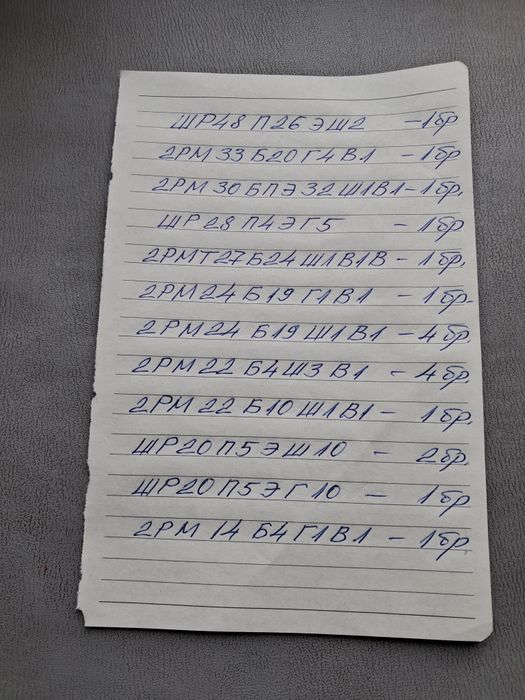 ШР48П26ЭШ2 - 1бр
2РМ33Б20Г4В1 - 1бр
2РМ30БПЭ32Ш1В1 - 1бр.
ШР28П4ЭГ5 - 1бр
2РМТ27Б24Ш1В1В - 1бр.
2РМ24Б19Г1В1 - 1бр.
2РМ24Б19Ш1В1 - 4бр.
2РМ22Б4Ш3В1 - 4бр.
2РМ22Б10Ш1В1 - 1бр.
ШР20П5ЭШ10 - 2бр.
ШР20П5ЭГ10 - 1бр
2РМ14Б4Г1В1 - 1бр.